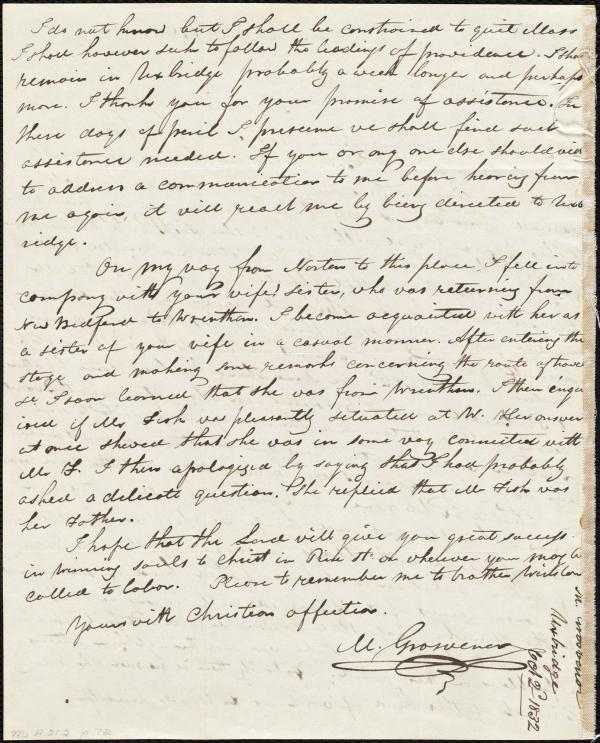 I do not know but I shall be constrained to quit Mass
I shall however seek to follow the leadings of providence. I shal
remain in Uxbridge probably a week longer and perhaps
more. I thank you for your promise of assistance. In
these days of peril I presume we shall find such
assistance needed. If you or any one else should wish
to address a communication to me before hearing from
me again, it will reach me by being directed to Uxb
ridge.
On my way from Norton to this place I fell into
company with your wife's sister, who was returning from
New Bedford to Wrentham. I became acquainted with her as
a sister of your wife in a casual manner. After entering the
stage and making some remarks concerning the route of trave
l I soon learned that she was from Wrentham. I then enqu
ired if Mr Fisk was pleasantly situated at W. Her answer
at once shewed that she was in some way connected with
Mr F. I then apologized by saying that I had probably
asked a delicate question. She replied that Mr Fisk was
her Father.
I hope that the Lord will give you great success
in winning souls to Christ in Pine St. or wherever you may be
called to labor. Please to remember me to brother Winslow
Yours with Christian affection.
M. Grosvenor
M. Grosvenor
Uxbridge
Oct 2d 1832
Ms. A.21.2 p. 72